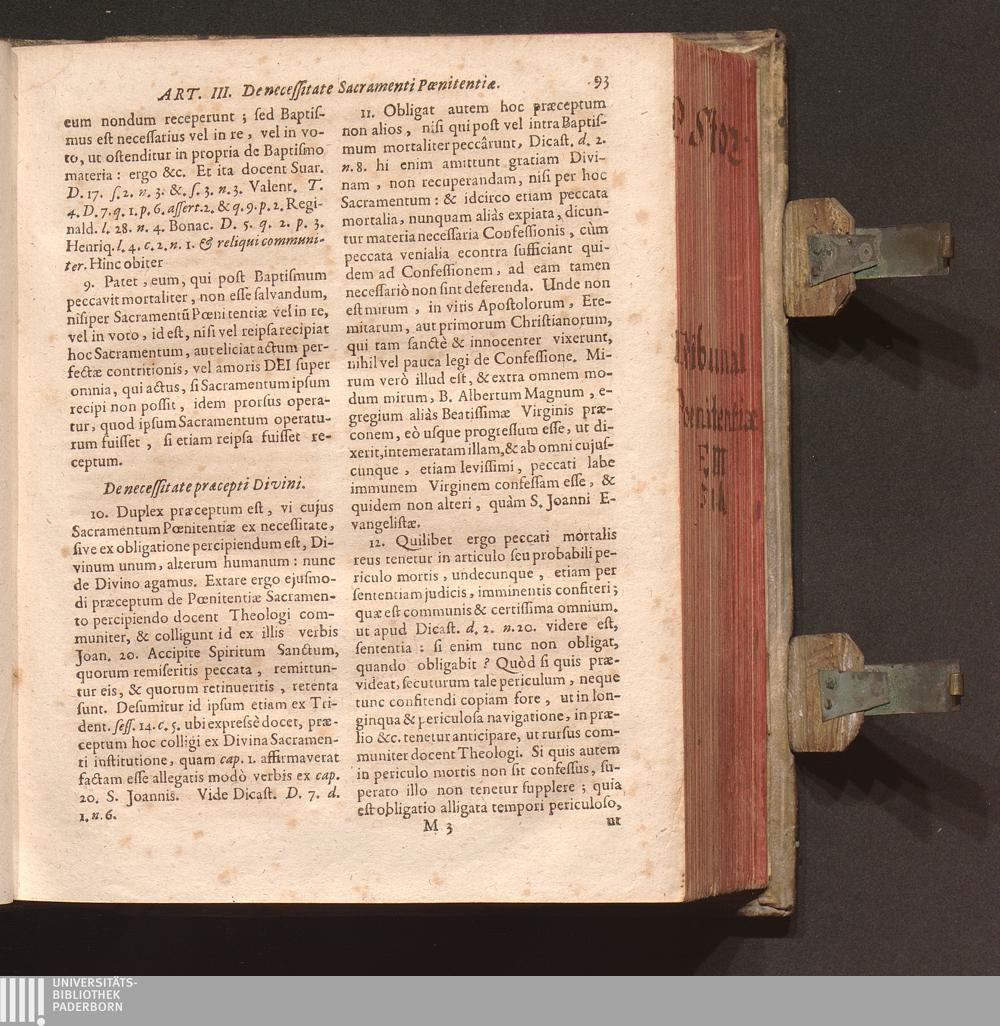 ART. III. De necessitate Sacramenti Pœnitentiæ. 93
eum nondum receperunt ; sed Baptis-
mus est necessarius vel in re, vel in vo-
to, ut ostenditur in propria de Baptismo
materia : ergo &c. Et ita docent Suar.
D. 17. s. 2. n. 3. &. s. 3. n. 3. Valent. T.
4. D. 7. q. 1. p. 6. assert. 2. & q. 9. p. 2. Regi-
nald. l. 28. n. 4. Bonac. D. 5. q. 2. p. 3.
Henriq. l. 4. c. 2. n. 1. & reliqui communi-
ter. Hinc obiter
9. Patet, eum, qui post Baptismum
peccavit mortaliter, non esse salvandum,
nisi per Sacramentũ Pœnitentiæ vel in re,
vel in voto, id est, nisi vel reipsa recipiat
hoc Sacramentum, aut eliciat actum per-
fectæ contritionis, vel amoris DEI super
omnia, qui actus, si Sacramentum ipsum
recipi non possit, idem prorsus opera-
tur, quod ipsum Sacramentum operatu-
rum fuisset, si etiam reipsa fuisset re-
ceptum.
De necessitate præcepti Divini.
10. Duplex præceptum est, vi cujus
Sacramentum Pœnitentiæ ex necessitate,
sive ex obligatione percipiendum est, Di-
vinum unum, alterum humanum : nunc
de Divino agamus. Extare ergo ejusmo-
di præceptum de Pœnitentiæ Sacramen-
to percipiendo docent Theologi com-
muniter, & colligunt id ex illis verbis
Joan. 20. Accipite Spiritum Sanctum,
quorum remiseritis peccata, remittun-
tur eis, & quorum retinueritis, retenta
sunt. Desumitur id ipsum etiam ex Tri-
dent. sess. 14. c. 5. ubi expressè docet, præ-
ceptum hoc colligi ex Divina Sacramen-
ti institutione, quam cap. 1. affirmaverat
factam esse allegatis modò verbis ex cap.
20. S. Joannis. Vide Dicast. D. 7. d.
1. n. 6.
11. Obligat autem hoc præceptum
non alios, nisi qui post vel intra Baptis-
mum mortaliter peccârunt, Dicast. d. 2.
n. 8. hi enim amittunt gratiam Divi-
nam, non recuperandam, nisi per hoc
Sacramentum : & idcirco etiam peccata
mortalia, nunquam aliàs expiata, dicun-
tur materia necessaria Confessionis, cùm
peccata venialia econtra sufficiant qui-
dem ad Confessionem, ad eam tamen
necessariò non sint deferenda. Unde non
est mirum, in vitis Apostolorum, Ere-
mitarum, aut primorum Christianorum,
qui tam sanctè & innocenter vixerunt,
nihil vel pauca legi de Confessione. Mi-
rum verò illud est, & extra omnem mo-
dum mirum, B. Albertum Magnum, e-
gregium aliàs Beatissimæ Virginis præ-
conem, eò usque progressum esse, ut di-
xerit, intemeratam illam, & ab omni cujus-
cunque, etiam levissimi, peccati labe
immunem Virginem confessam esse, &
quidem non alteri, quàm S. Joanni E-
vangelistæ.
12. Quilibet ergo peccati mortalis
reus tenetur in articulo seu probabili pe-
riculo mortis, undecunque, etiam per
sententiam judicis, imminentis confiteri ;
quæ est communis & certissima omnium.
ut apud Dicast. d. 2. n. 20. videre est,
sententia : si enim tunc non obligat,
quando obligabit ? Quòd si quis præ-
videat, secuturum tale periculum, neque
tunc confitendi copiam fore, ut in lon-
ginqua & periculosa navigatione, in præ-
lio &c. tenetur anticipare, ut rursus com-
muniter docent Theologi. Si quis autem
in periculo mortis non sit confessus, su-
perato illo non tenetur supplere ; quia
est obligatio alligata tempori periculoso,
M 3 ut
P. Stoz
Tribunal
Pœnitentiæ
UNIVERSITÄTS-
BIBLIOTHEK
PADERBORN